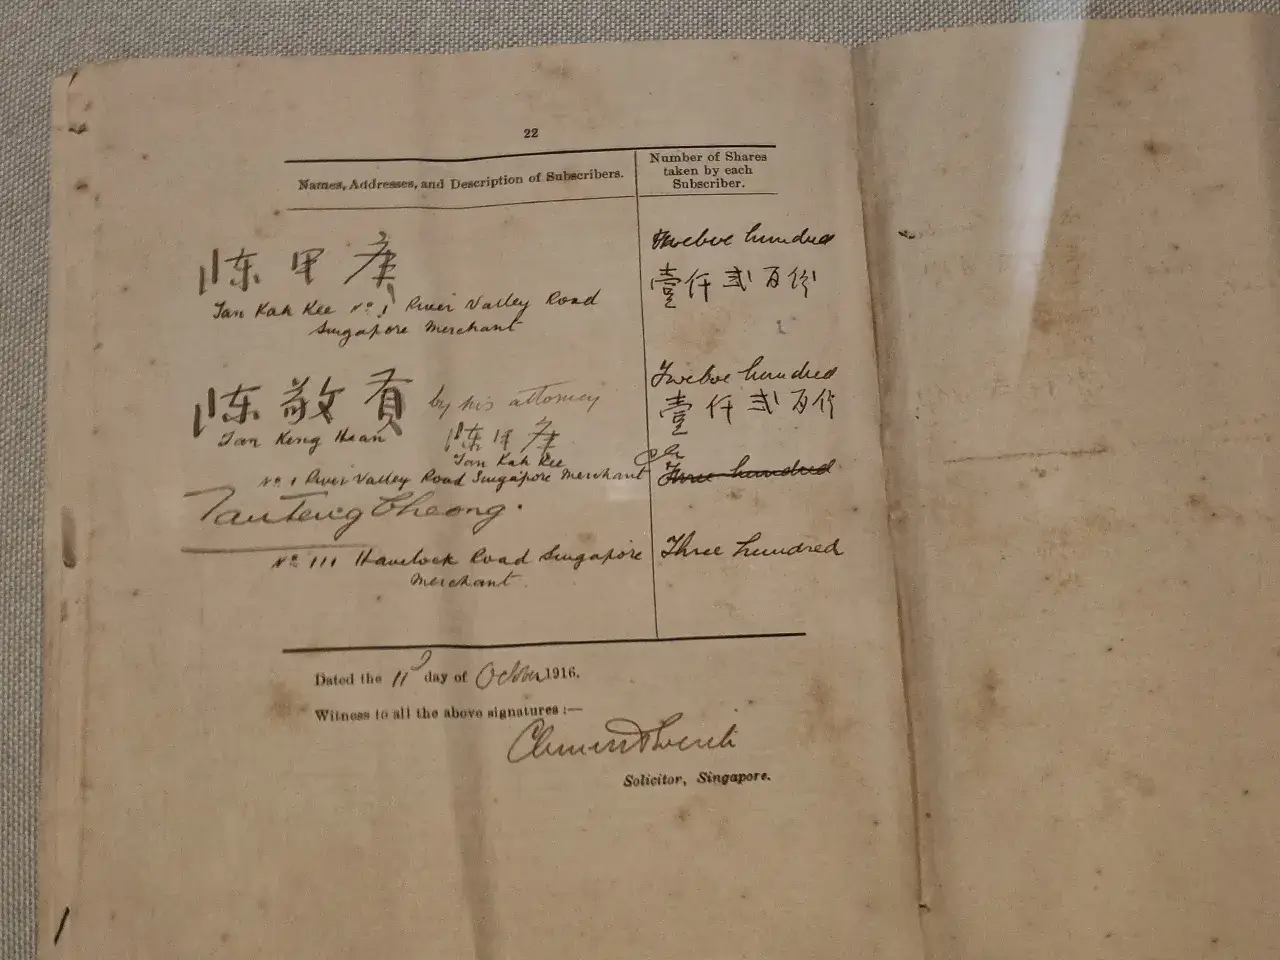 22
Names, Addresses, and Description of Subscribers.
Number of Shares
taken by each
Subscriber.
陈甲庚
Tan Kah Kee No. 1 River Valley Road
Singapore Merchant
Twelve hundred
壹仟弍百份
陈敬賢 by his attorney
Tan Keng Hean
陈甲庚
Tan Kah Kee
No 1 River Valley Road Singapore Merchant
Twelve hundred
壹仟弍百份
Three hundred
Tan Teng Cheong.
No 111 Havelock Road Singapore
Merchant
Three hundred
Dated the 11 day of October 1916.
Witness to all the above signatures :—
Solicitor, Singapore.